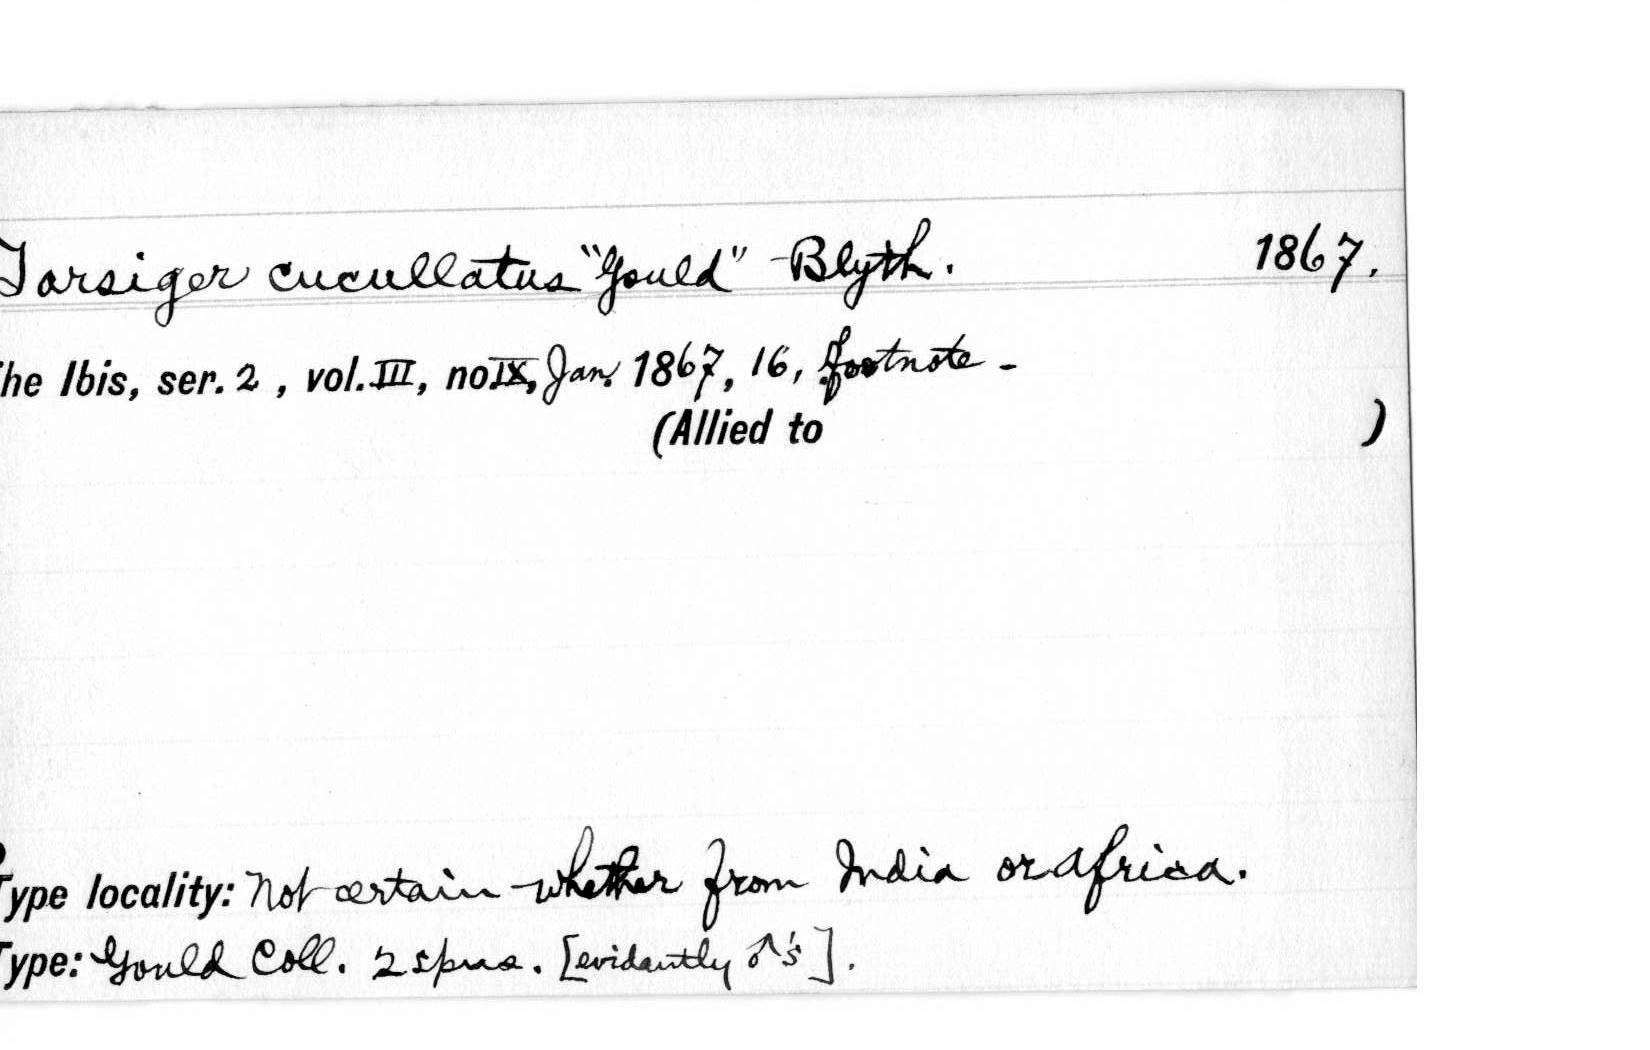 Tarsiger cucullatus "Gould" Blyth. 1867.
The Ibis, ser. 2, vol. III, no. IX, Jan. 1867, 16, footnote -
(Allied to )
Type locality: Not certain whether from India or Africa.
Type: Gould Coll. 2 spns. [evidantly ♂'s].